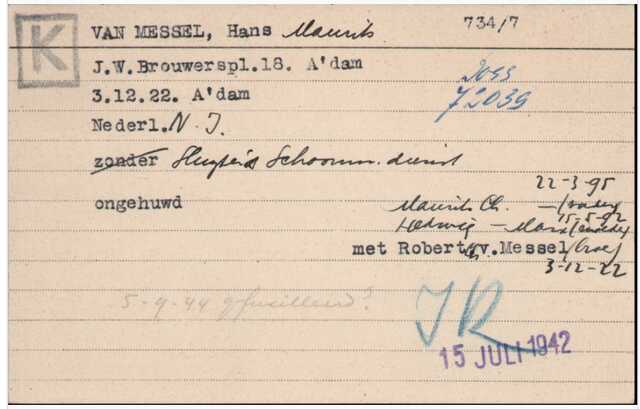 K
VAN MESSEL, Hans Maurits 734/7
J.W.Brouwerspl.18. A'dam
3.12.22. A'dam 72039
Nederl. N. I.
zonder dienst
22-3-95
ongehuwd Maurits Ch. — (vader)
15-5-92
Hedwig — (moeder)
met Robert v. Messel (broer)
3-12-22
5-9-44 gefusilleerd?
JR
15 JULI 1942